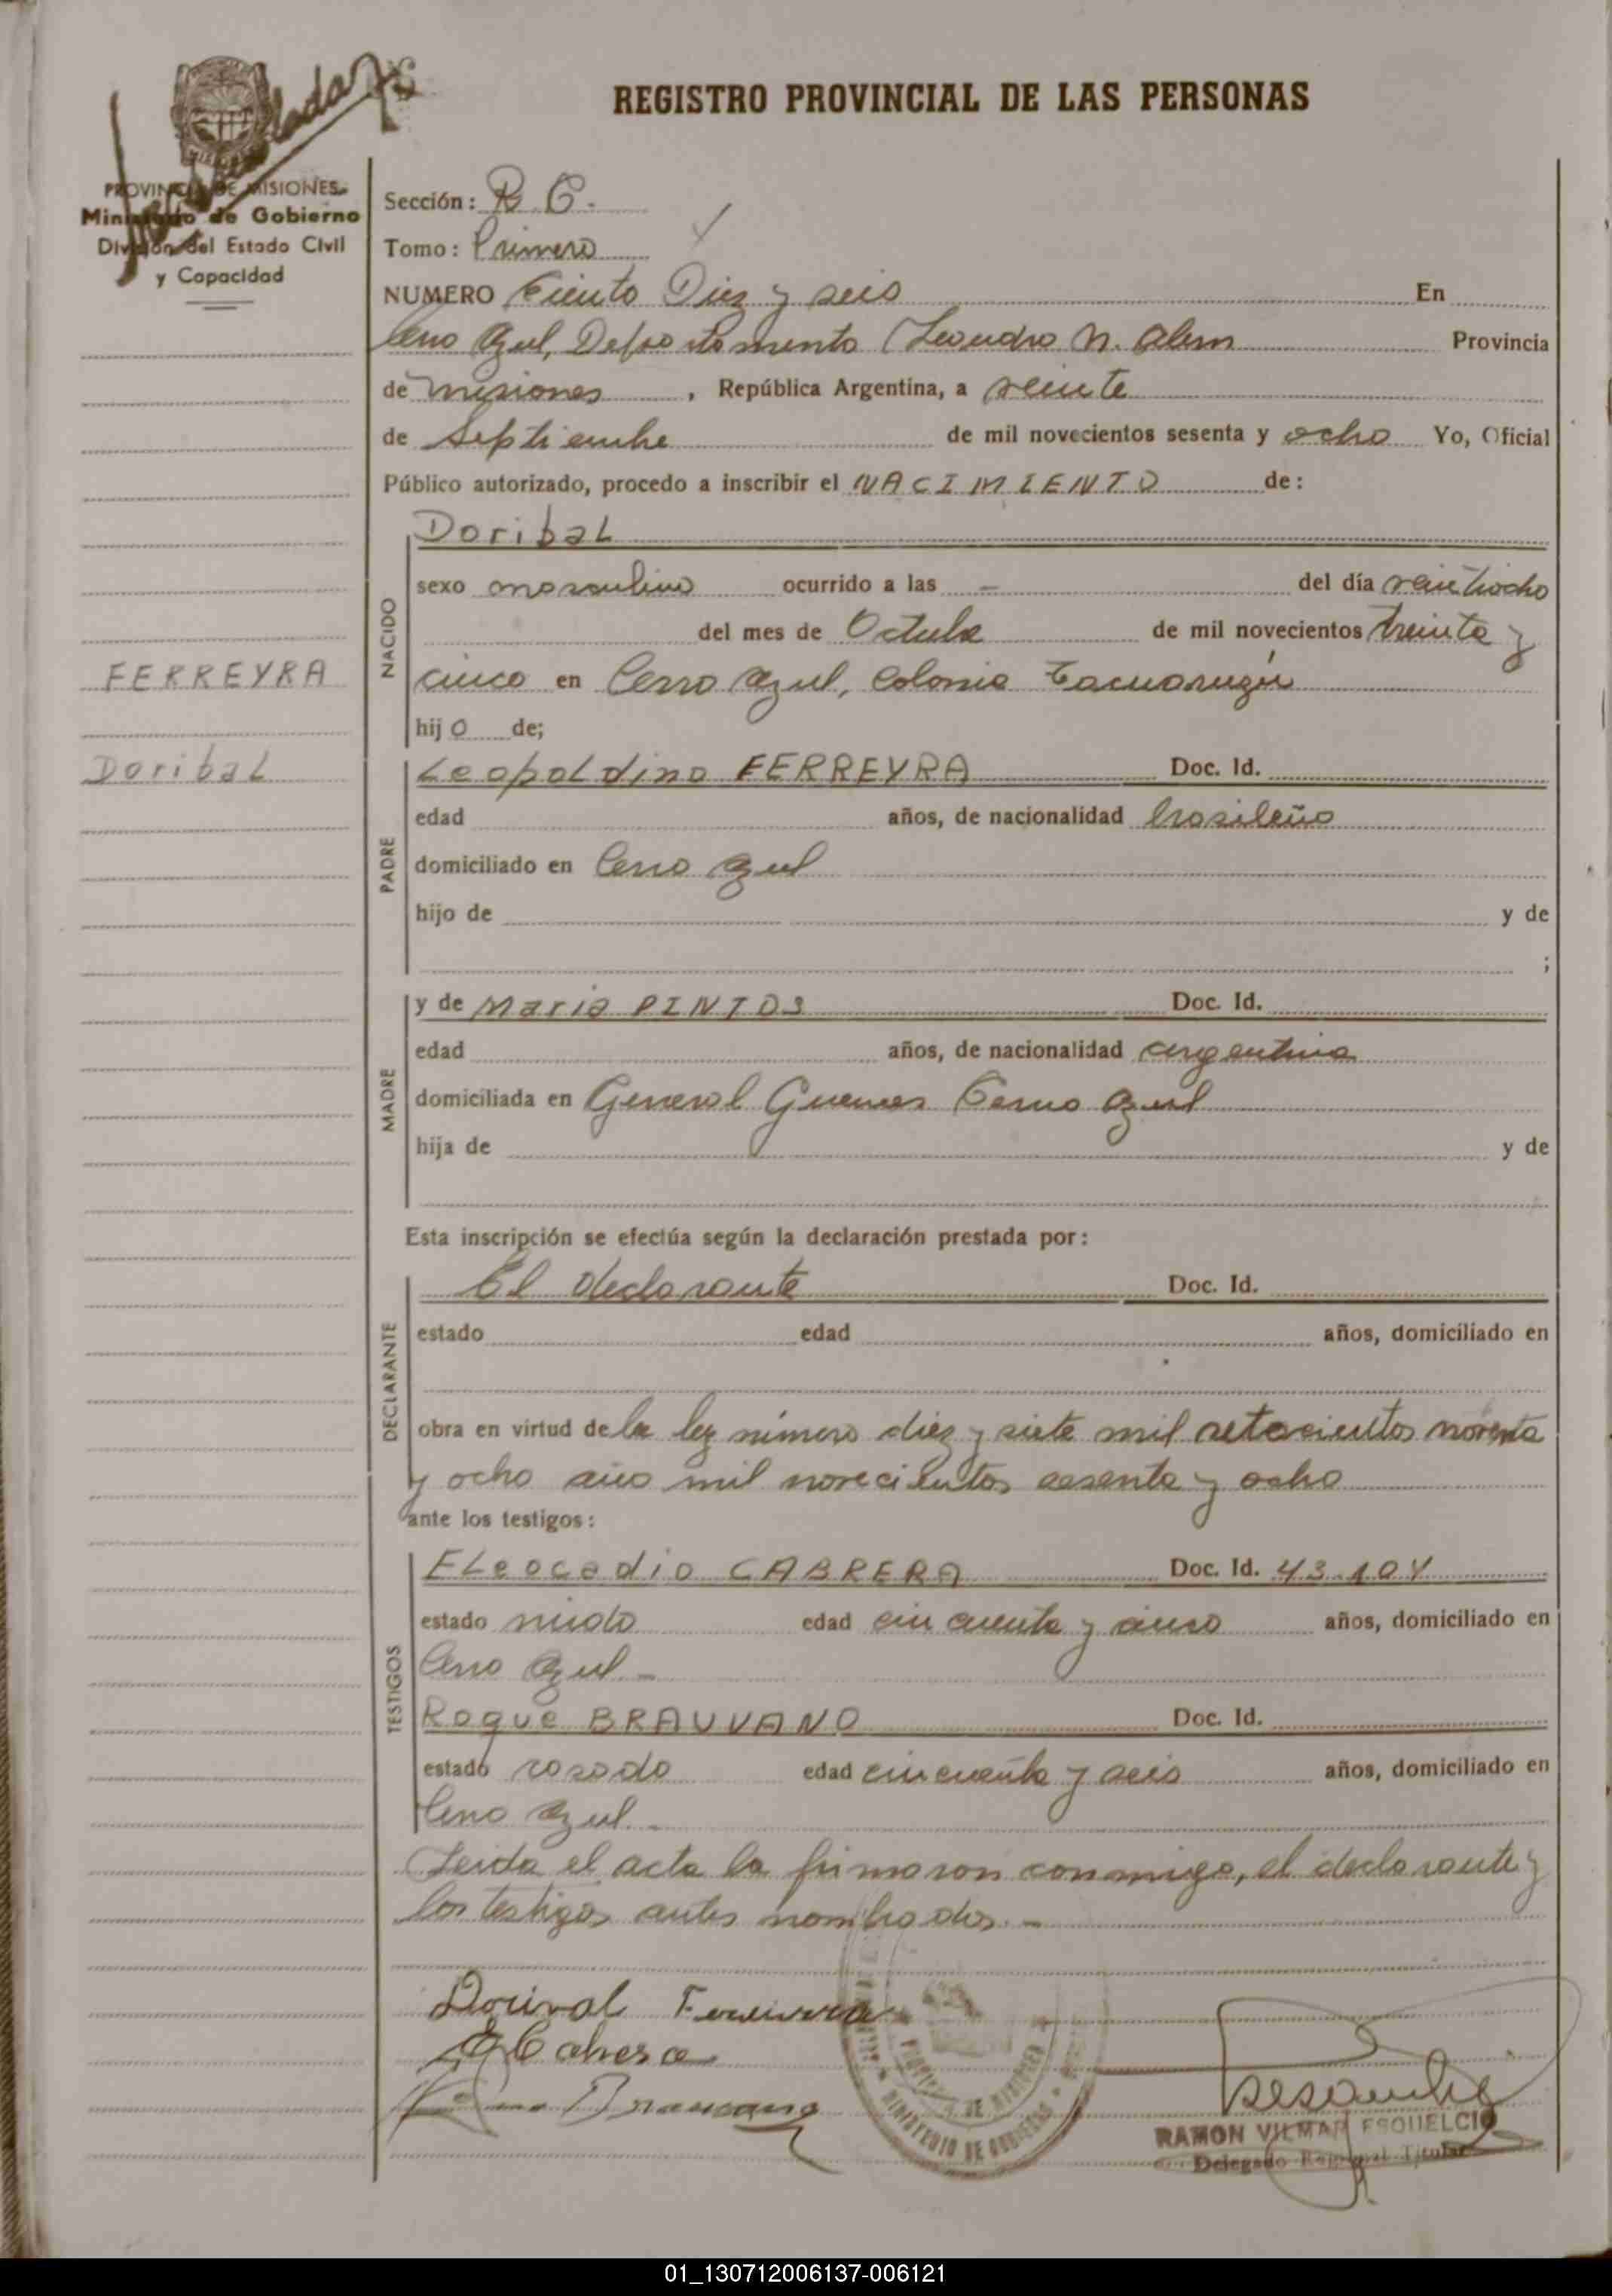 REGISTRO PROVINCIAL DE LAS PERSONAS
PROVINCIA DE MISIONES
Ministerio de Gobierno
División del Estado Civil
y Capacidad
Sección:
Tomo: Primero
NUMERO Ciento Diez y seis En
Cerro Azul, Departamento Leandro N. Alem Provincia
de Misiones, República Argentina, a veinte
de Septiembre de mil novecientos sesenta y ocho Yo, Oficial
Público autorizado, procedo a inscribir el NACIMIENTO de:
FERREYRA
Doribal
NACIDO
Doribal
sexo masculino ocurrido a las - del día veintiocho
del mes de Octubre de mil novecientos treinta y
cinco en Cerro Azul, Colonia
hijo de;
PADRE
Leopoldino FERREYRA Doc. Id.
edad años, de nacionalidad brasileño
domiciliado en Cerro Azul
hijo de y de
;
MADRE
y de Maria PINTOS Doc. Id.
edad años, de nacionalidad argentina
domiciliada en General Guemes Cerro Azul
hija de y de
Esta inscripción se efectúa según la declaración prestada por:
DECLARANTE
El declarante Doc. Id.
estado edad años, domiciliado en
obra en virtud de la ley número diez y siete mil setecientos noventa
y ocho año mil novecientos sesenta y ocho
ante los testigos:
TESTIGOS
ELeocadio CABRERA Doc. Id. 43.104
estado viudo edad cincuenta y cinco años, domiciliado en
Cerro Azul -
Roque BRAUVANO Doc. Id.
estado casado edad cincuenta y seis años, domiciliado en
Cerro Azul. -
Leida el acta la firmaron conmigo, el declarante y
los testigos antes nombrados. -
Dorival Ferreira
E Cabrera
PROVINCIA DE MISIONES
MINISTERIO DE GOBIERNO
RAMON VILMAR ESQUELCIO
Delegado Regional Titular
01_130712006137-006121